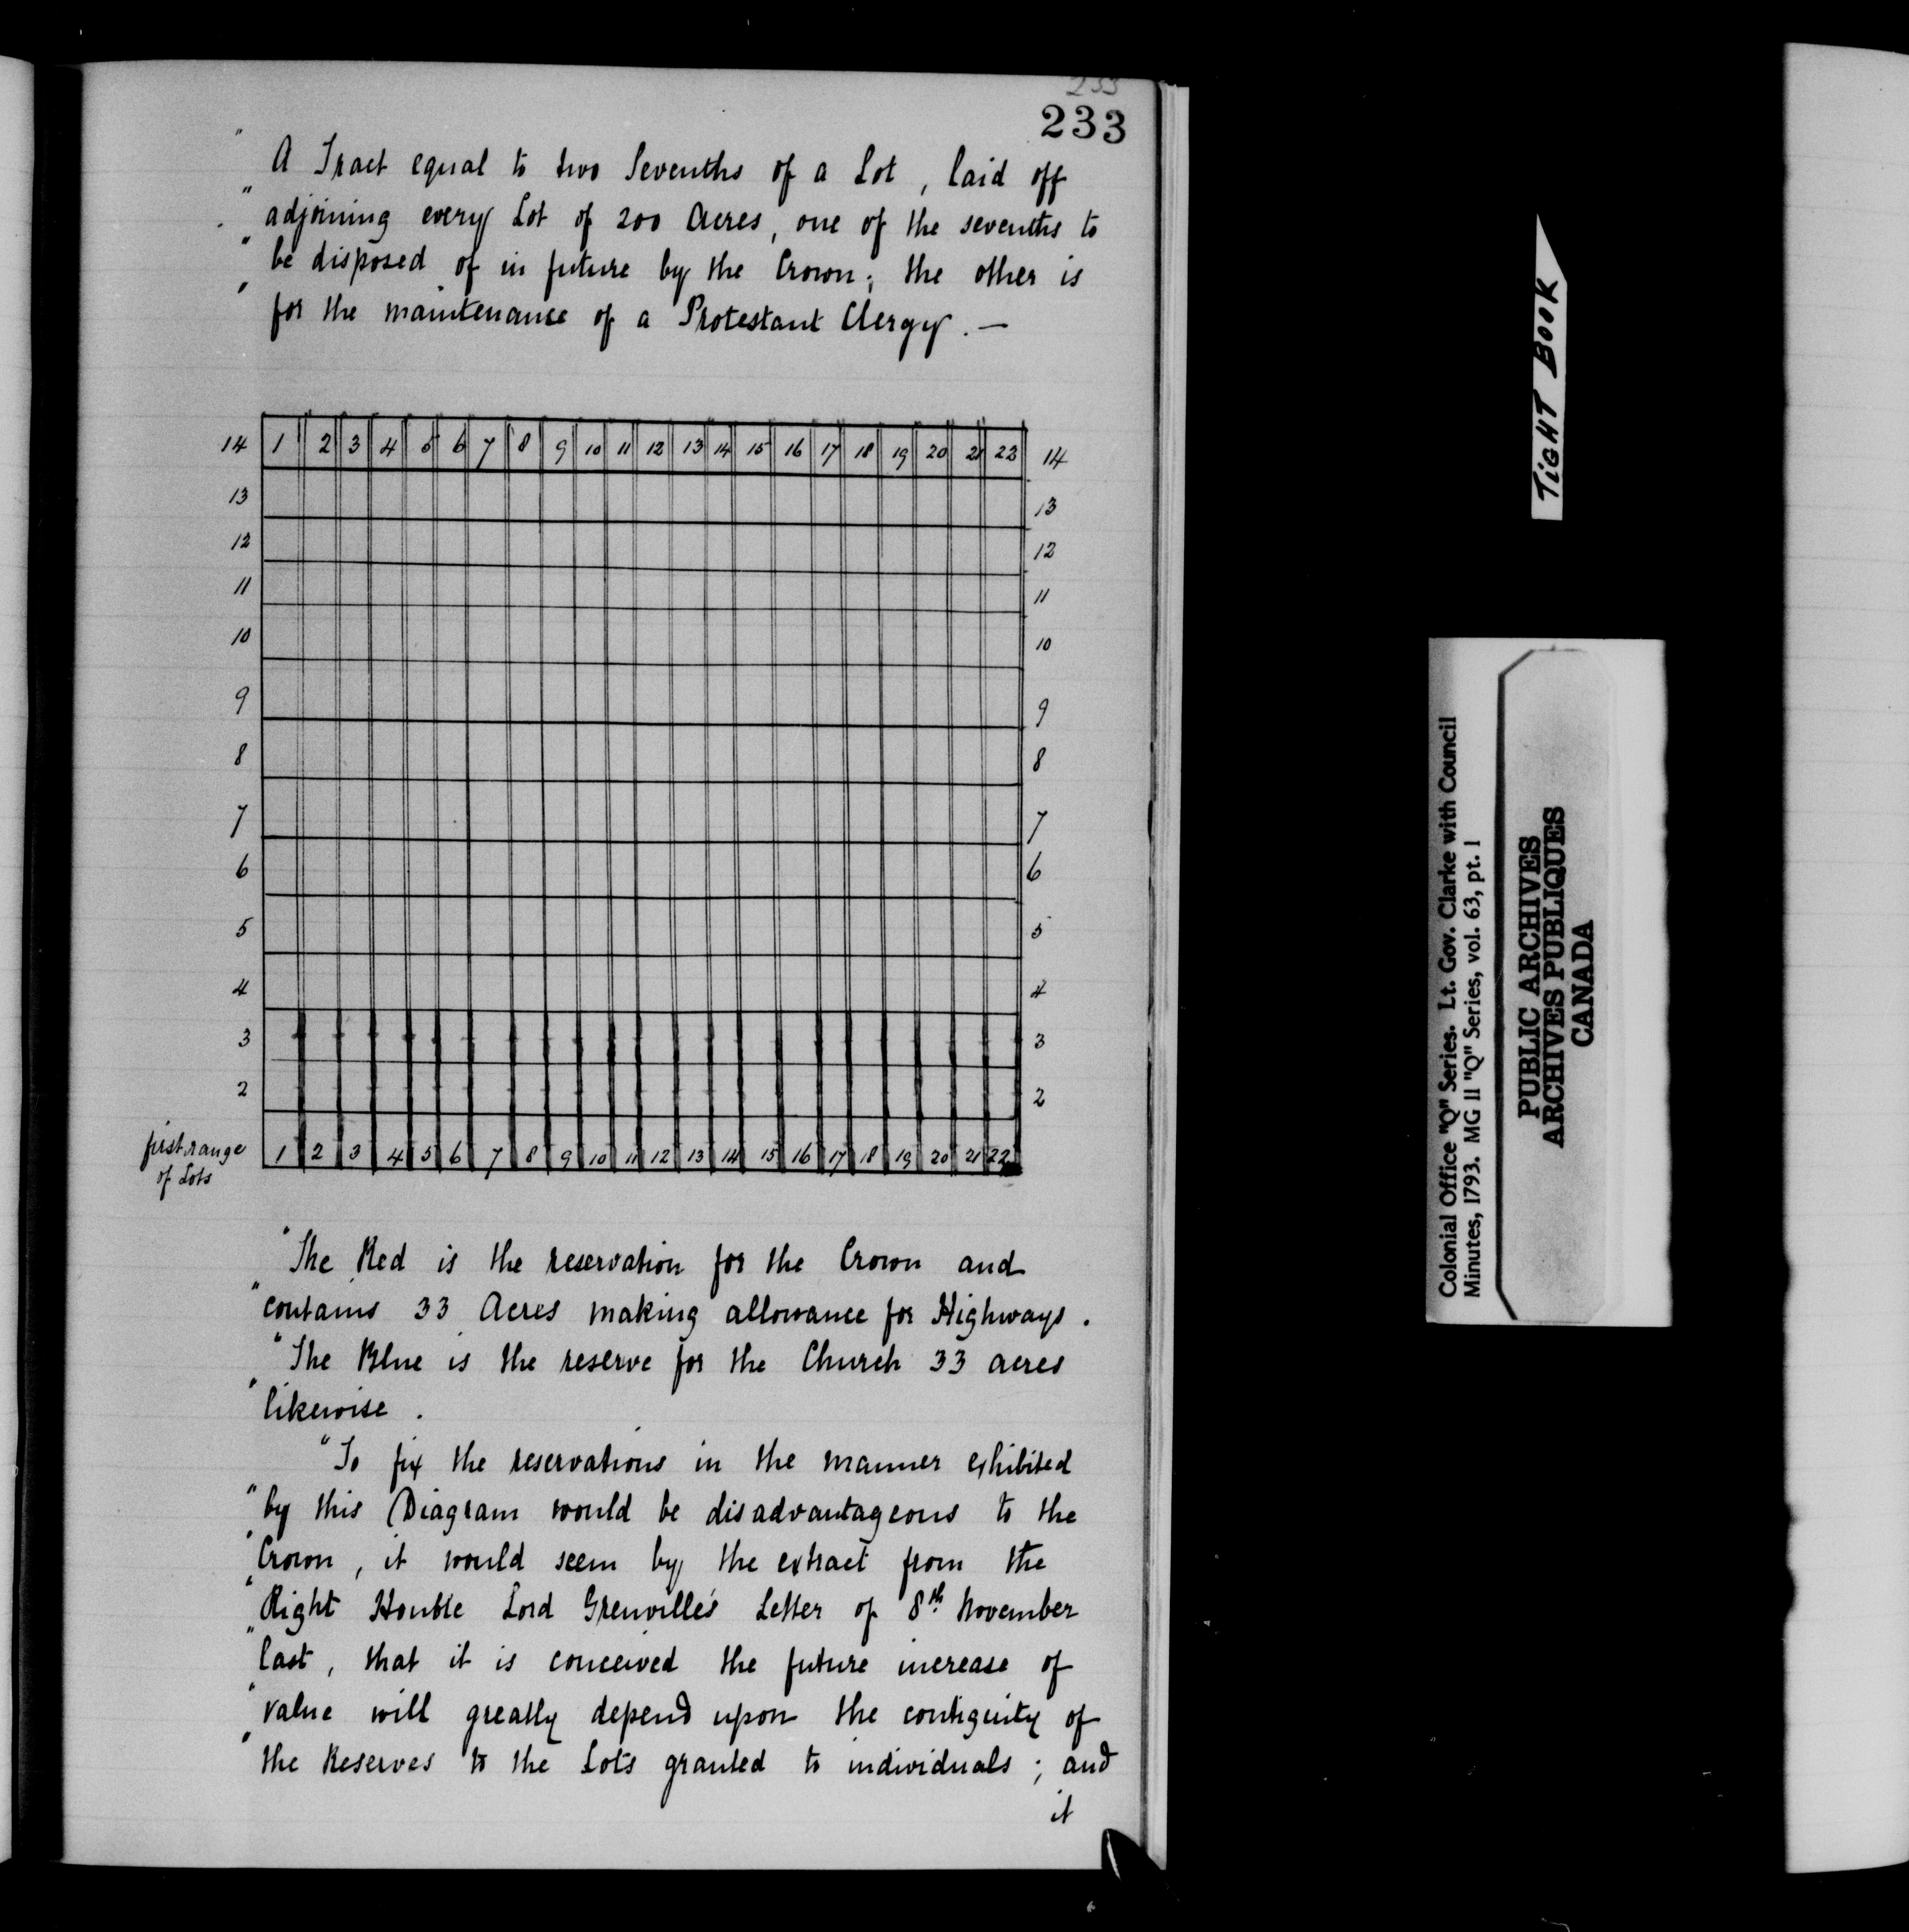 233
233
" A Tract equal to two Sevenths of a Lot, laid off
" adjoining every Lot of 200 Acres, one of the sevenths to
" be disposed of in future by the Crown; the other is
" for the maintenance of a Protestant Clergy. —
14 1 2 3 4 5 6 7 8 9 10 11 12 13 14 15 16 17 18 19 20 21 22 14
13 13
12 12
11 11
10 10
9 9
8 8
7 7
6 6
5 5
4 4
3 3
2 2
first range 1 2 3 4 5 6 7 8 9 10 11 12 13 14 15 16 17 18 19 20 21 22
of Lots
"The Red is the reservation for the Crown and
"contains 33 Acres making allowance for Highways.
"The Blue is the reserve for the Church 33 acres
"likewise.
"To fix the reservations in the manner exhibited
"by this Diagram would be disadvantageous to the
"Crown, it would seem by the extract from the
"Right Honble Lord Grenville's Letter of 8th November
"last, that it is conceived the future increase of
"value will greatly depend upon the contiguity of
"the Reserves to the Lots granted to individuals; and
it
TIGHT BOOK
Colonial Office "Q" Series. Lt. Gov. Clarke with Council
Minutes, 1793. MG 11 "Q" Series, vol. 63, pt. 1
PUBLIC ARCHIVES
ARCHIVES PUBLIQUES
CANADA